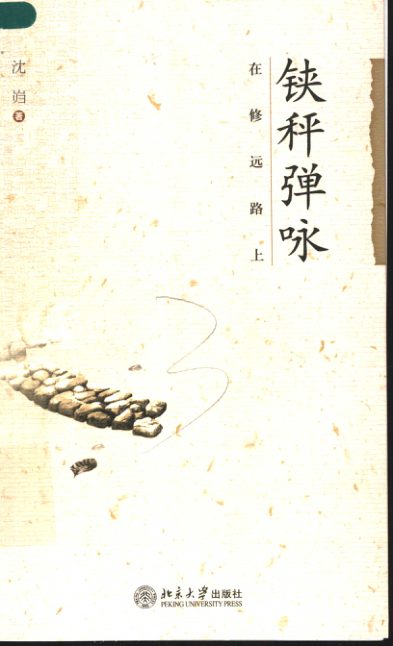 铗秤弹咏
在修远路上
沈岿 著
北京大学出版社
PEKING UNIVERSITY PRESS